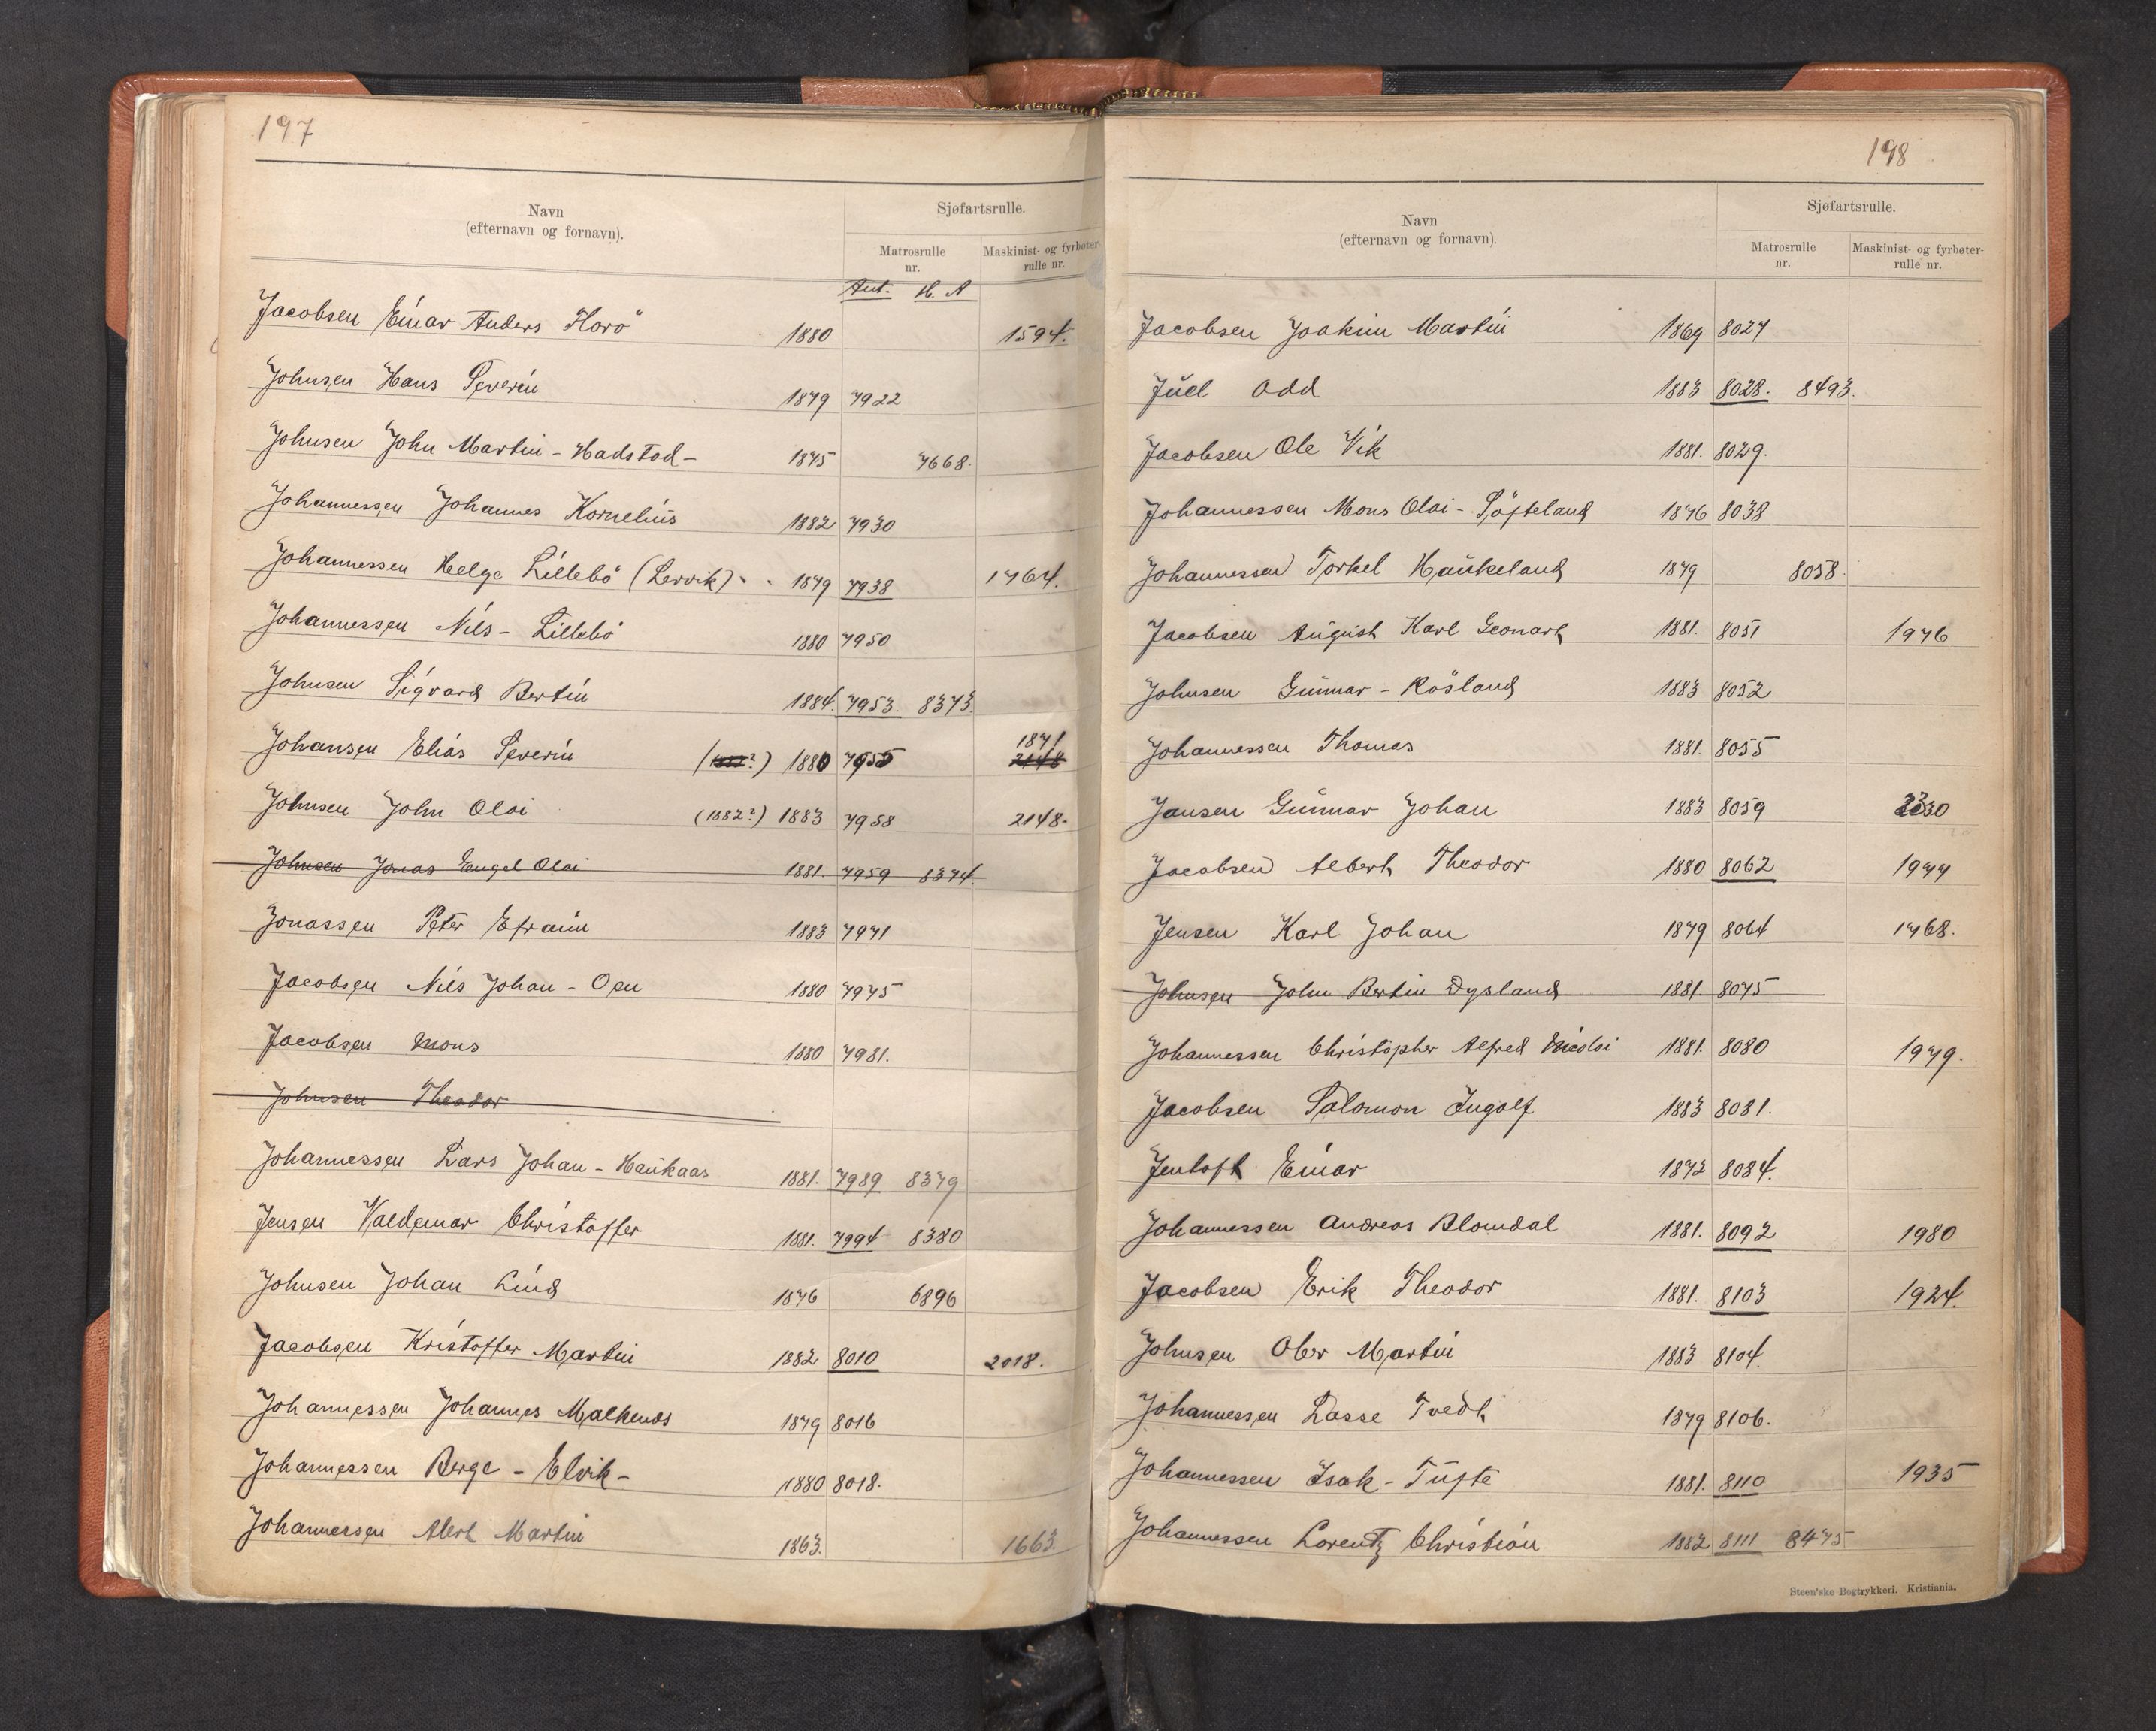 197
Navn
(efternavn og fornavn).
Sjøfartsrulle.
Matrosrulle
nr.
Maskinist- og fyrbøter-
rulle nr.
Ant. H. A
Jacobsen Einar Anders Florö 1880 1594.
Johnsen Hans Severin 1879 7922
Johnsen John Martin - Hadstod - 1875 7668.
Johannessen Johannes Kornelius 1882 7930
Johannessen Helge Lillebö (Lervik) 1879 7938 1764.
Johannessen Nils - Lillebö 1880 7950
Johnsen Sigvard Bertin 1884. 7953. 8373.
Johansen Elias Severin 1880 7955 1871 2148
Johnsen John Olai (1882?) 1883 7958 2148-
Johnsen Jonas Engel Olai 1881. 7959 8374.
Jonassen Peter Efraim 1883 7971
Jacobsen Nils Johan - Oen 1880 7975
Jacobsen Mons 1880 7981.
Johnsen Theodor
Johannessen Lars Johan - Haukaas 1881. 7989 8379
Jensen Valdemar Christoffer 1881. 7994 8380
Johnsen Johan Lind 1876 6896
Jacobsen Kristoffer Martin 1882 8010 2018.
Johannessen Johannes Malkenes 1879 8016
Johannessen Berge - Elvik - 1880 8018.
Johannessen Alert Martin 1863. 1663.
198
Navn
(efternavn og fornavn)
Sjøfartsrulle.
Matrosrulle
nr.
Maskinist- og fyrbøter-
rulle nr.
Jacobsen Joakim Martin 1869 8027
Juel Odd 1883 8028. 8493.
Jacobsen Ole Vik 1881. 8029.
Johannessen Mons Olai - Söfteland 1876 8038
Johannessen Torkel Haukeland 1879 8058.
Jacobsen August Karl Leonart 1881. 8051 1976
Johnsen Gunnar - Rösland 1883 8052
Johannessen Thomas 1881. 8055
Jansen Gunnar Johan 1883 8059 2330
Jacobsen Albert Theodor 1880 8062 1977
Jensen Karl Johan 1879 8064 1768.
Johnsen John Bertin Dysland 1881. 8075
Johannessen Christopher Alfred Nicolai 1881. 8080 1979.
Jacobsen Salomon Ingolf 1883 8081.
Jentoft Einar 1872 8084.
Johannessen Andreas Blomdal 1881. 8092 1980
Jacobsen Erik Theodor 1881. 8103 1924.
Johnsen Ober Martin 1883 8104.
Johannessen Lasse Tvedt 1879 8106.
Johannessen Isak - Tufte 1881. 8110 1935
Johannessen Lorentz Christian 1882 8111 8475
Steen'ske Bogtrykkeri. Kristiania.